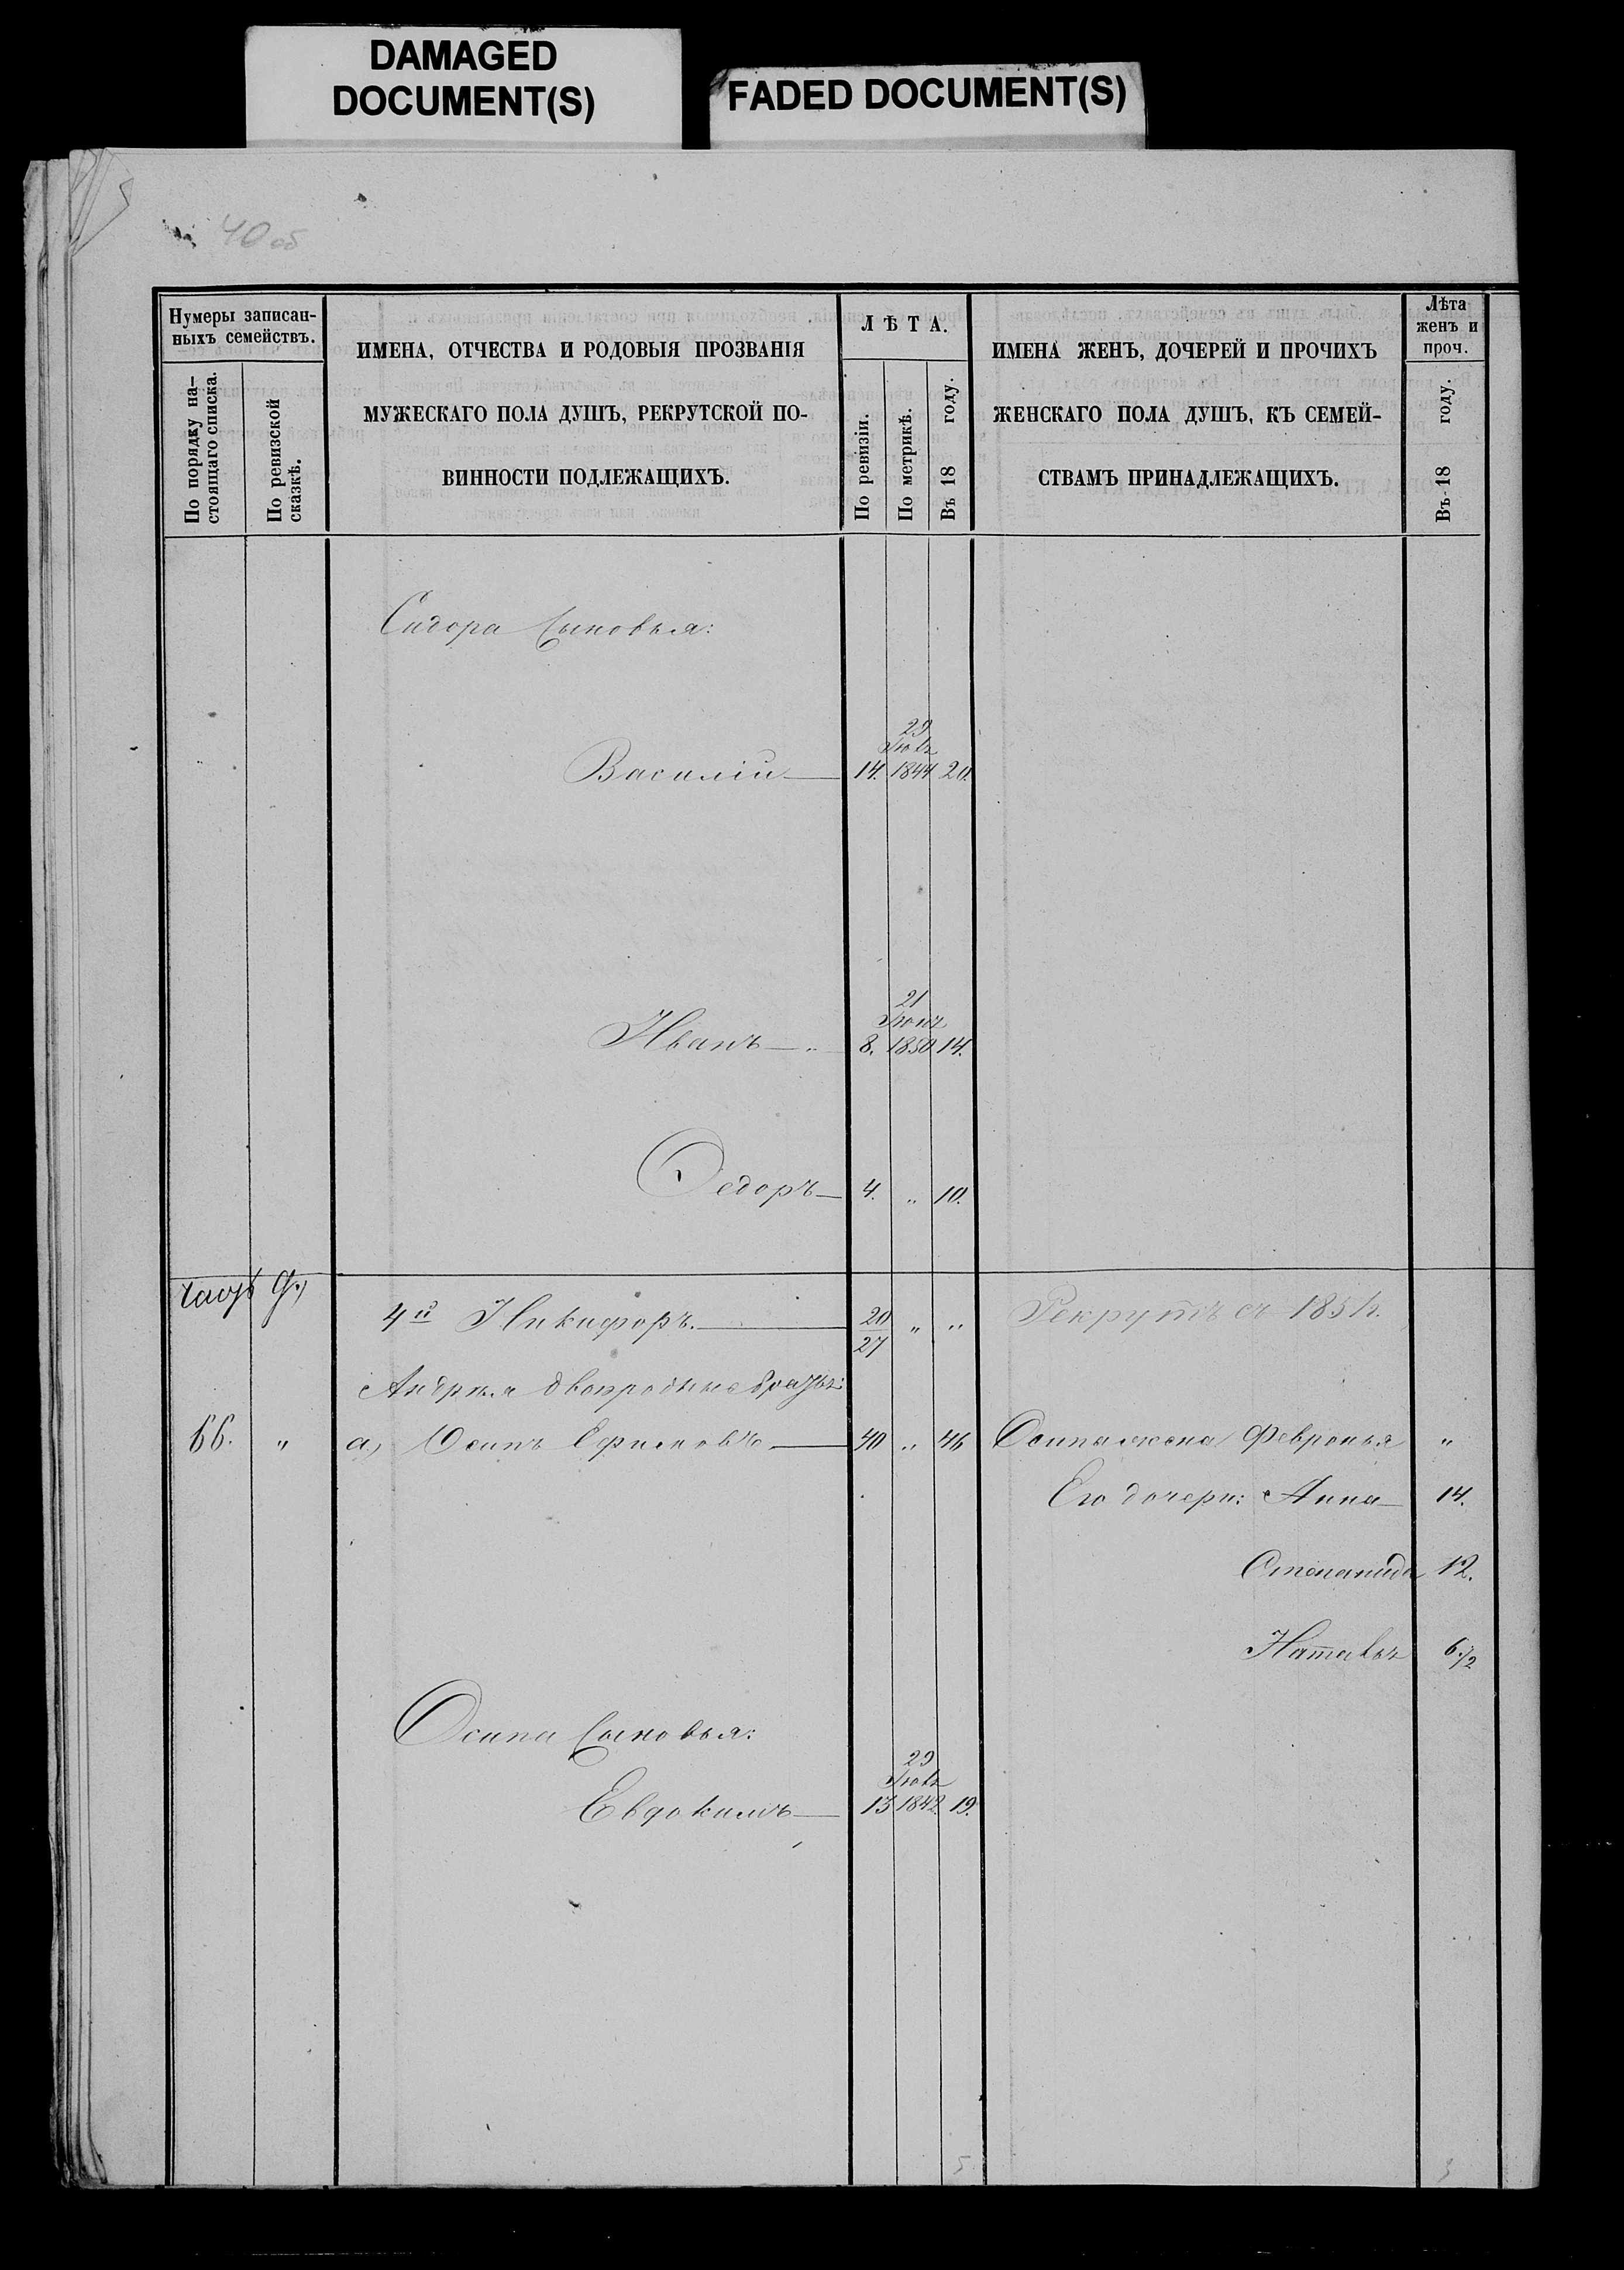 DAMAGED
DOCUMENT(S)
FADED DOCUMENT(S)
40 об
Нумеры записан-
ныхъ семействъ.
По порядку на-
стоящаго списка.
По ревизской
сказкѣ.
ИМЕНА, ОТЧЕСТВА И РОДОВЫЯ ПРОЗВАНІЯ
МУЖЕСКАГО ПОЛА ДУШЪ, РЕКРУТСКОЙ ПО-
ВИННОСТИ ПОДЛЕЖАЩИХЪ.
ЛѢТА.
По ревизіи.
По метрикѣ.
Въ 18 году.
ИМЕНА ЖЕНЪ, ДОЧЕРЕЙ И ПРОЧИХЪ
ЖЕНСКАГО ПОЛА ДУШЪ, КЪ СЕМЕЙ-
СТВАМЪ ПРИНАДЛЕЖАЩИХЪ.
Лѣта
женъ и
проч.
Въ 18 году.
Сидора сыновья:
29
Василій 14. 1844 20.
21
Иванъ 8. 1850 14.
Ѳедоръ 4. „ 10.
4й Никифоръ. 20/27 „ „ Рекрутъ съ 185
Андрея двоюродные братья:
66. „ а) Осипъ Ефимовъ 40 „ 46 Осипа жена Февронья „
Его дочери: Анна 14.
Степанида 12.
Наталья 6 1/2
Осипа сыновья:
29
Евдокимъ 13 1842. 19.